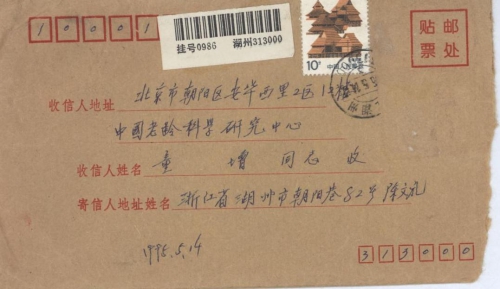 1 0 0 0 1 1
挂号0986 湖州313000
贴邮
票处
10分 中国人民邮政
收信人地址 北京市朝阳区安华西里2区13楼
中国老龄科学研究中心
收信人姓名 童增 同志 收
寄信人地址姓名 浙江省湖州市朝阳巷82号 陈
1995.5.14
3 1 3 0 0 0